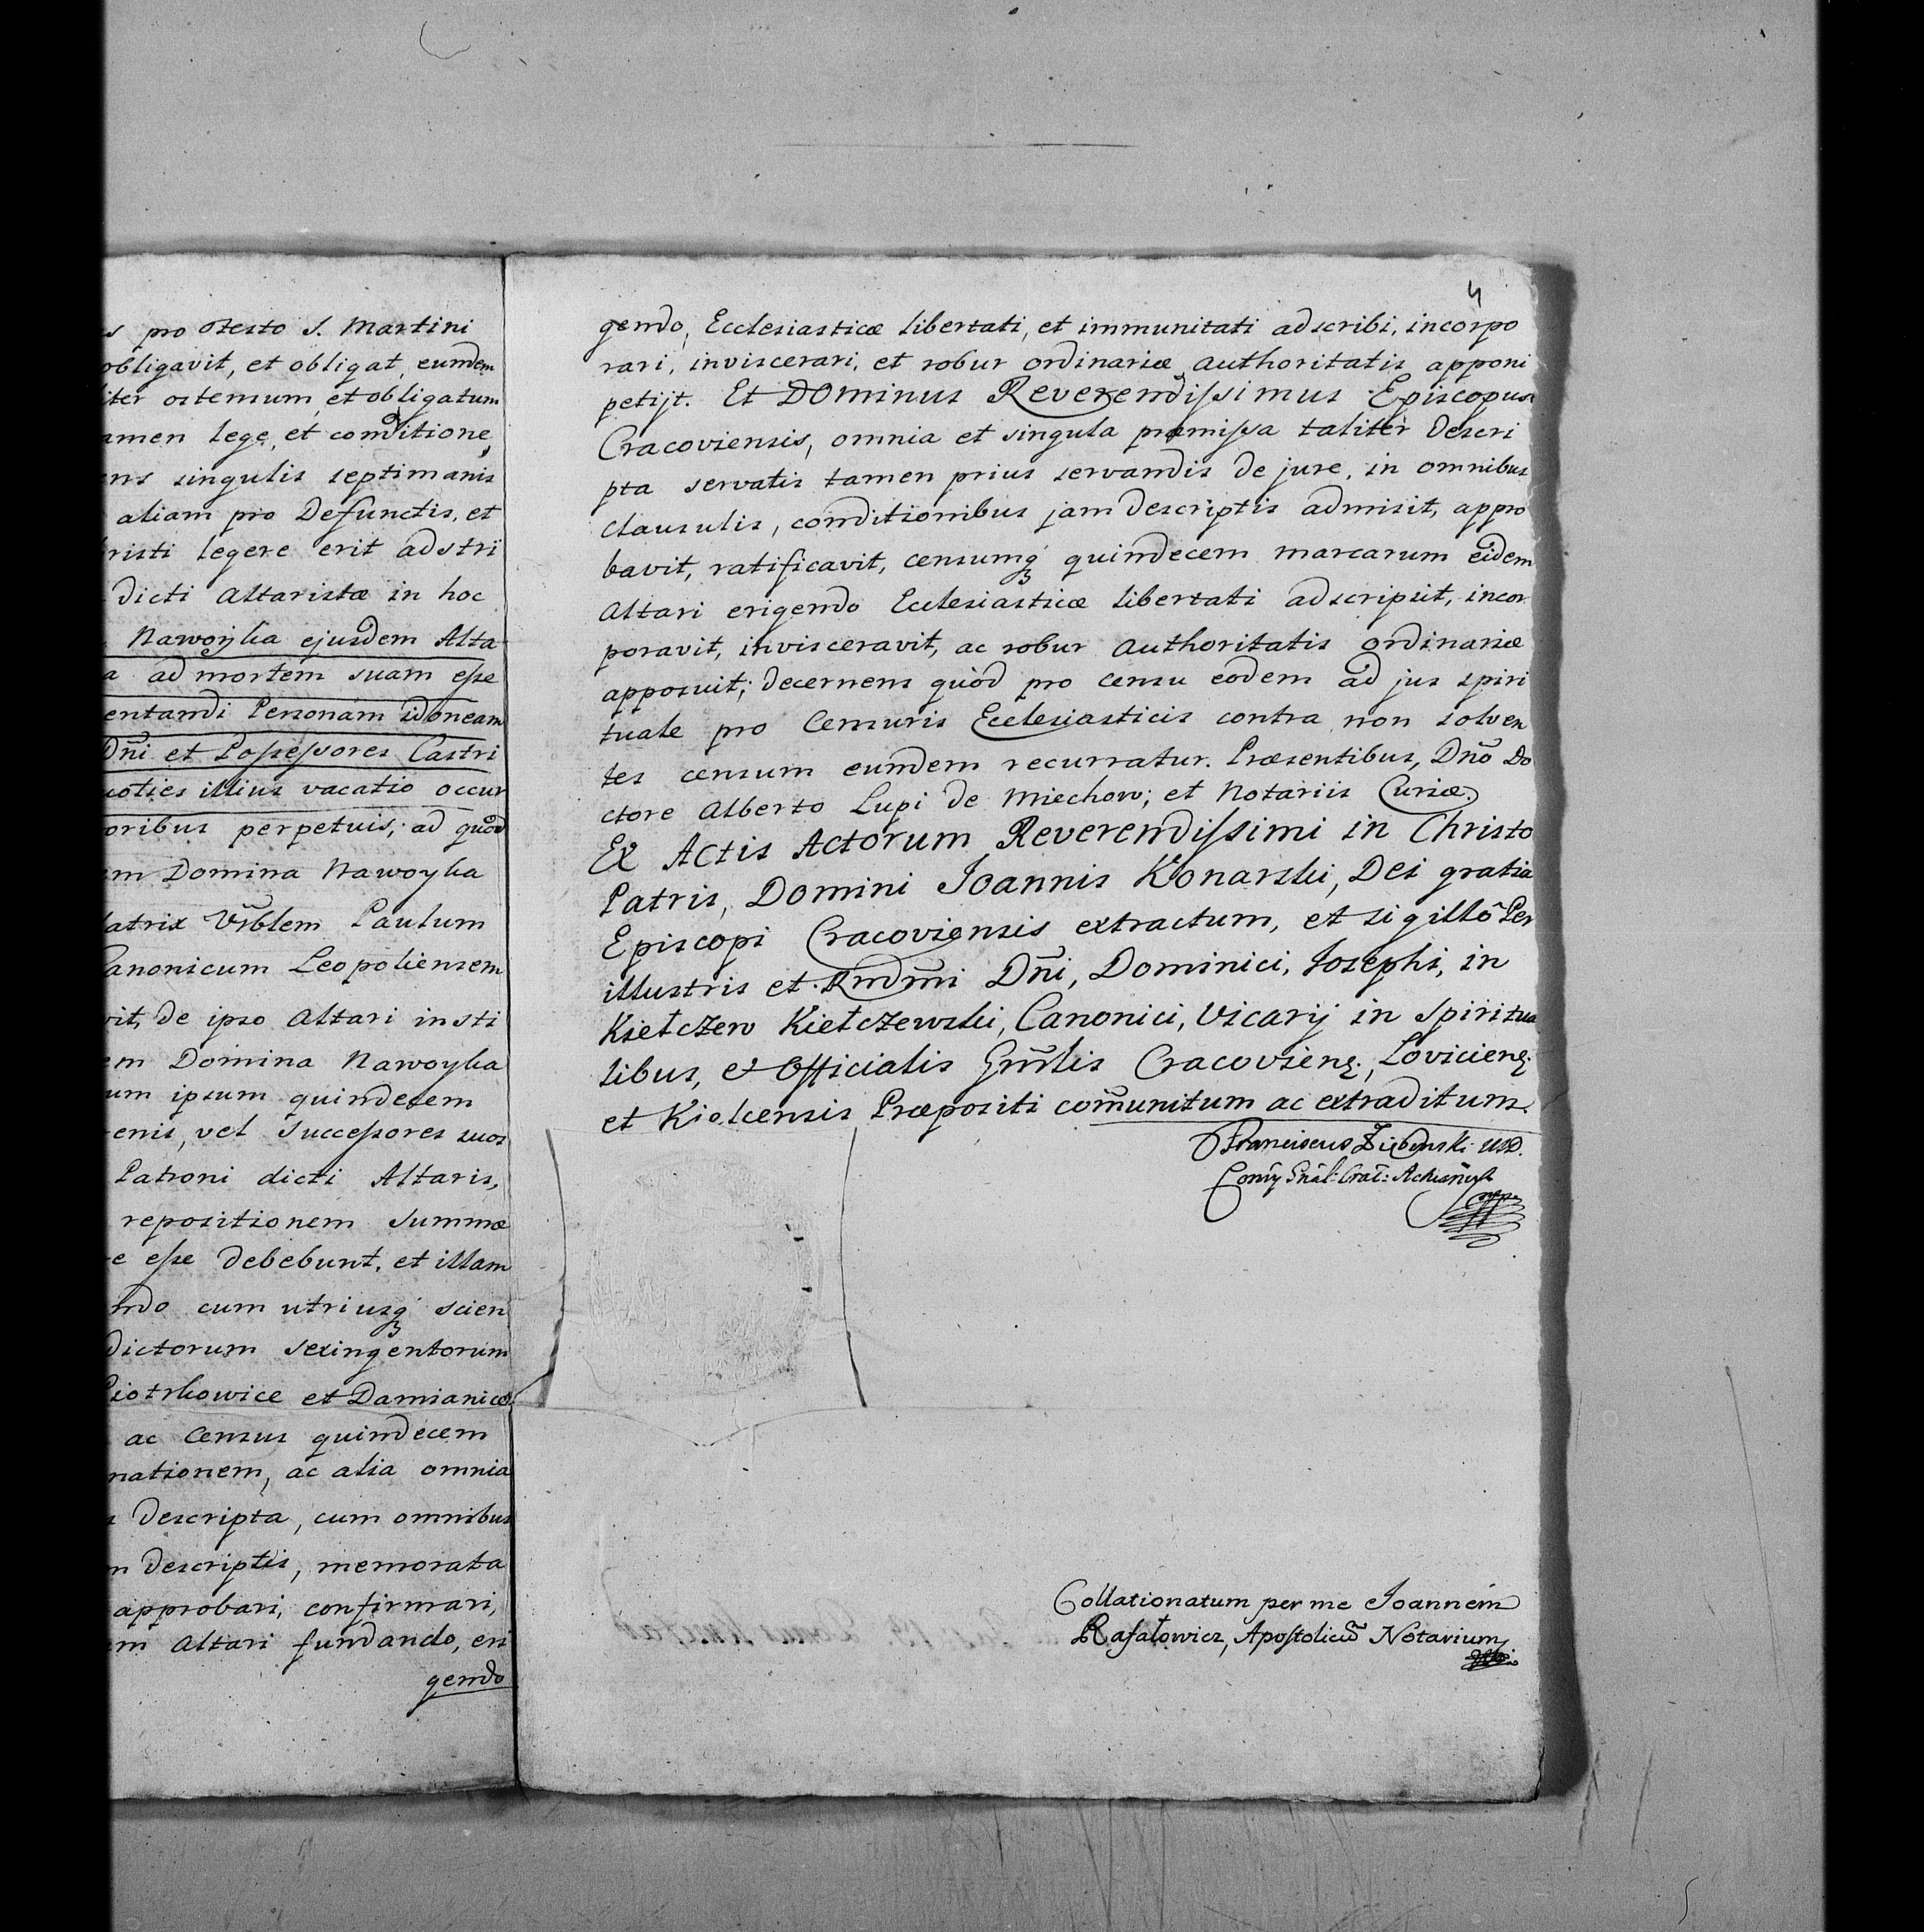 pro Festo S. Martini
obligavit, et obligat, eundem
ostensum, et obligatum
lege, et conditione,
singulis septimanis
aliam pro Defunctis, et
legere erit adstri
dicti Altaristæ in hoc
Nawoyka ejusdem Alta
ad mortem suam eſse
Personam idoneam
Dn̄i et Poſseſsores Castri
illius vacatio occur
perpetuis, ad quod
Domina Nawoyka
Vn̄blem Paulum
Canonicum Leopoliensem
de ipso Altari insti
Domina Nawoyka
ipsum quindecem
vel Succeſsores suos
Patroni dicti Altaris,
repositionem Summæ
eſse debebunt, et illam
cum utriusq; scien
dictorum sexingentorum
Piotrkowice et Damianice
ac Census quindecem
ac alia omnia
Descripta, cum omnibus
descriptis, memorata
approbari, confirmari,
Altari fundando, eri
gendo
4
gendo, Ecclesiasticæ libertati, et immunitati adscribi, incorpo
rari, inviscerari, et robur ordinariæ authoritatis apponi
petijt. Et Dominus Reverendiſsimus Episcopus
Cracoviensis, omnia et singula præmiſsa taliter descri
pta servatis tamen prius servandis de jure, in omnibus
clausulis, conditionibus jam descriptis admisit, appro
bavit, ratificavit, censumq; quindecem marcarum eidem
Altari erigendo Ecclesiasticæ libertati adscripsit, incor
poravit, invisceravit, ac robur Authoritatis ordinariæ
apposuit; decernens quòd pro censu eodem ad jus spiri
tuale pro Censuris Ecclesiasticis contra non solven
tes censum eundem recurratur. Præsentibus, Dnō Do
ctore Alberto Lupi de Miechow; et Notariis Curiæ.
Ex Actis Actorum Reverendiſsimi in Christo
Patris, Domini Joannis Konarski, Dei gratia
Episcopi Cracoviensis extractum, et sigillô Per
illustris et Rndm̄i Dn̄i, Dominici, Josephi, in
Kiełczew Kiełczewski, Canonici, Vicarij in Spiritua
libus, et Officialis Gn̄rlis Cracovien̄s., Lovicien̄s.
et Kielcensis Præpositi com̄unitum ac extraditum.
Franciscus
Collationatum per me Joannem
Rafałowicz, Apostolicū Notarium